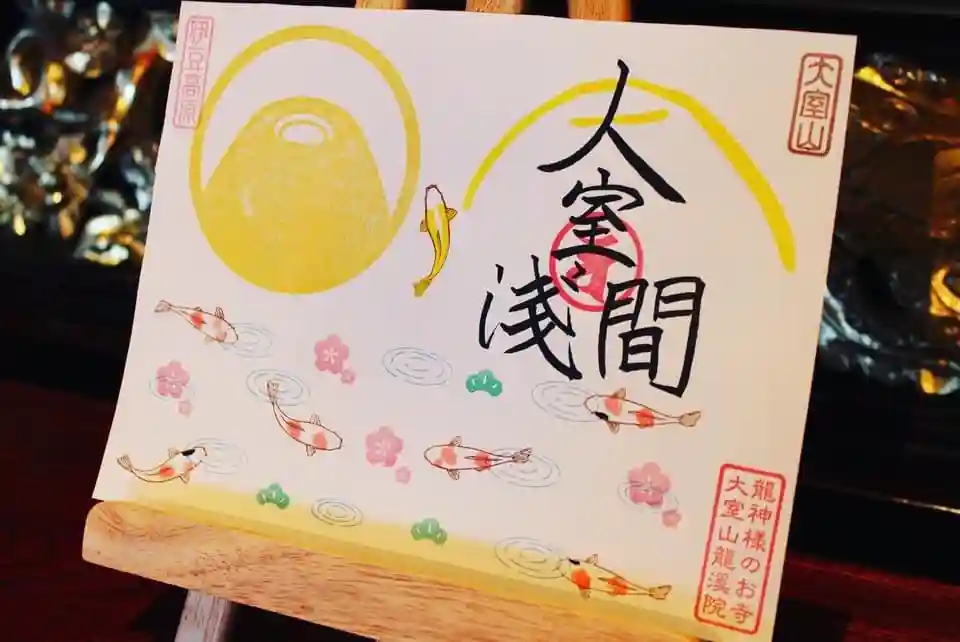 伊豆高原
大室山
大室
浅間
龍神様のお寺
大室山龍溪院